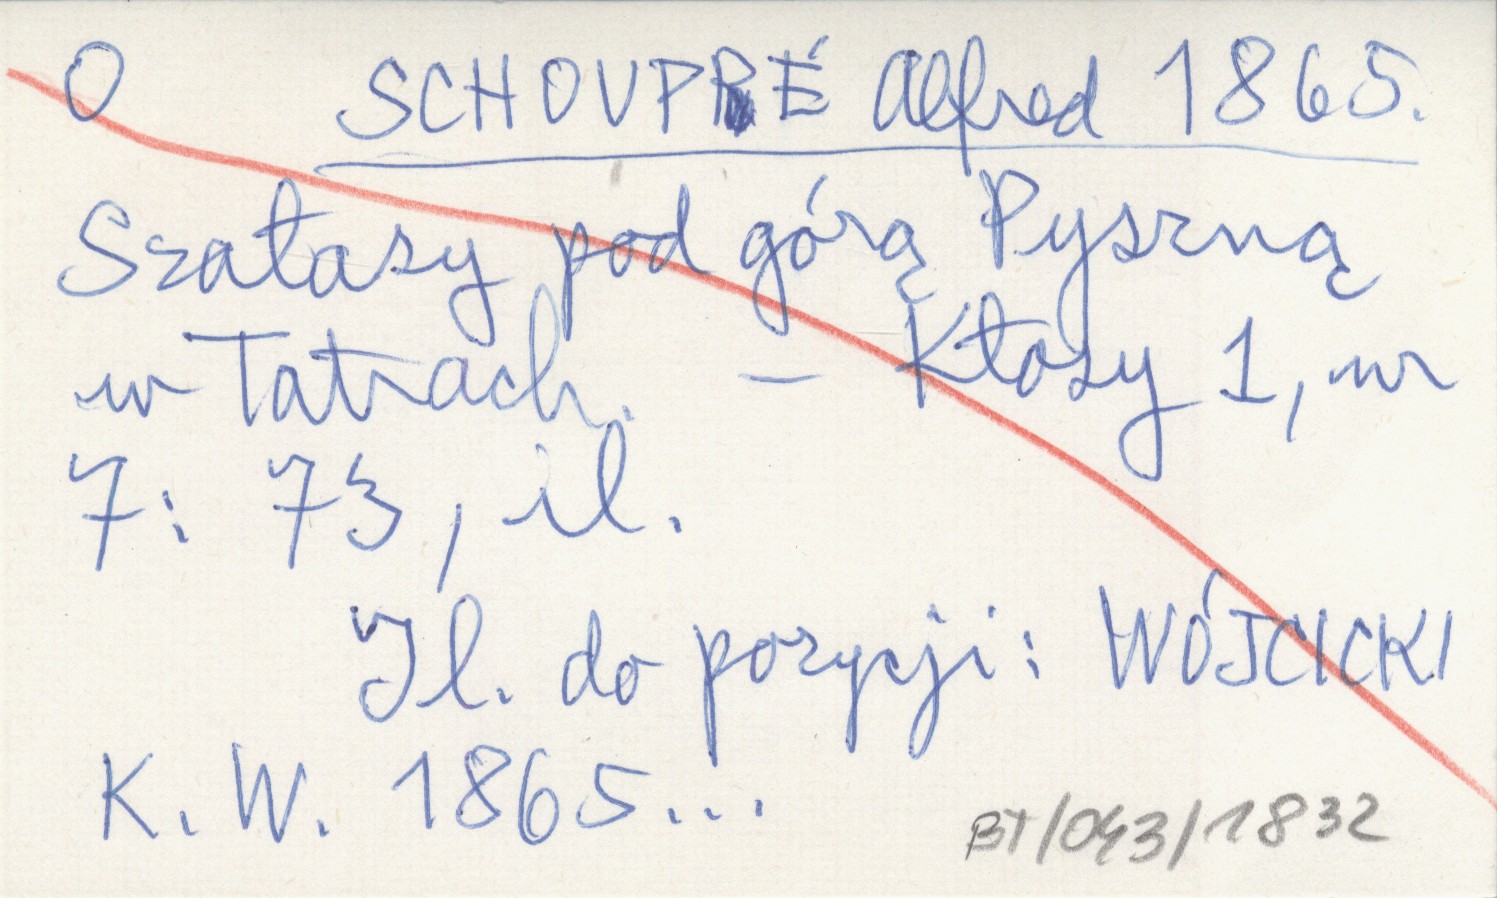 O SCHOUPPÉ Alfred 1865.
Szałasy pod górą Pyszną
w Tatrach. – Kłosy 1, nr
7: 73, il.
Il. do pozycji: WÓJCICKI
K. W. 1865...
BT/043/1832